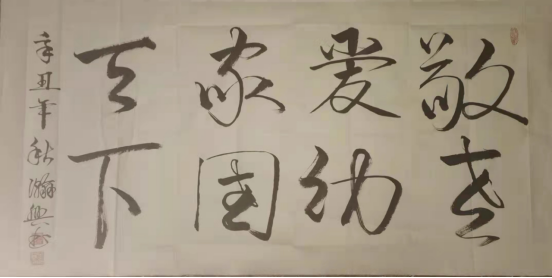 敬老
爱幼
家国
天下
辛丑年秋瀚兴